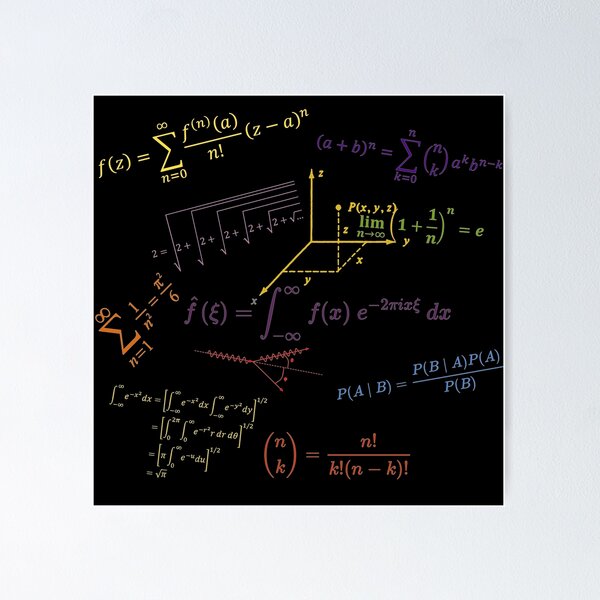 f(z) = ∑_{n=0}^{∞} \frac{f^{(n)}(a)}{n!} (z − a)^n
(a + b)^n = ∑_{k=0}^{n} \binom{n}{k} a^k b^{n−k}
z
P(x, y, z)
\lim_{n→∞} (1 + \frac{1}{n})^n = e
2 = √(2 + √(2 + √(2 + √(2 + √(2 + √...)))))
z
y
x
y
x
∑_{n=1}^{∞} \frac{1}{n^2} = \frac{π^2}{6}
f̂(ξ) = ∫_{−∞}^{∞} f(x) e^{−2πixξ} dx
P(A | B) = \frac{P(B | A)P(A)}{P(B)}
∫_{−∞}^{∞} e^{−x^2} dx = [∫_{−∞}^{∞} e^{−x^2} dx ∫_{−∞}^{∞} e^{−y^2} dy]^{1/2}
= [∫_0^{2π} ∫_0^{∞} e^{−r^2} r dr dθ]^{1/2}
= [π ∫_0^{∞} e^{−u} du]^{1/2}
= √π
\binom{n}{k} = \frac{n!}{k!(n − k)!}